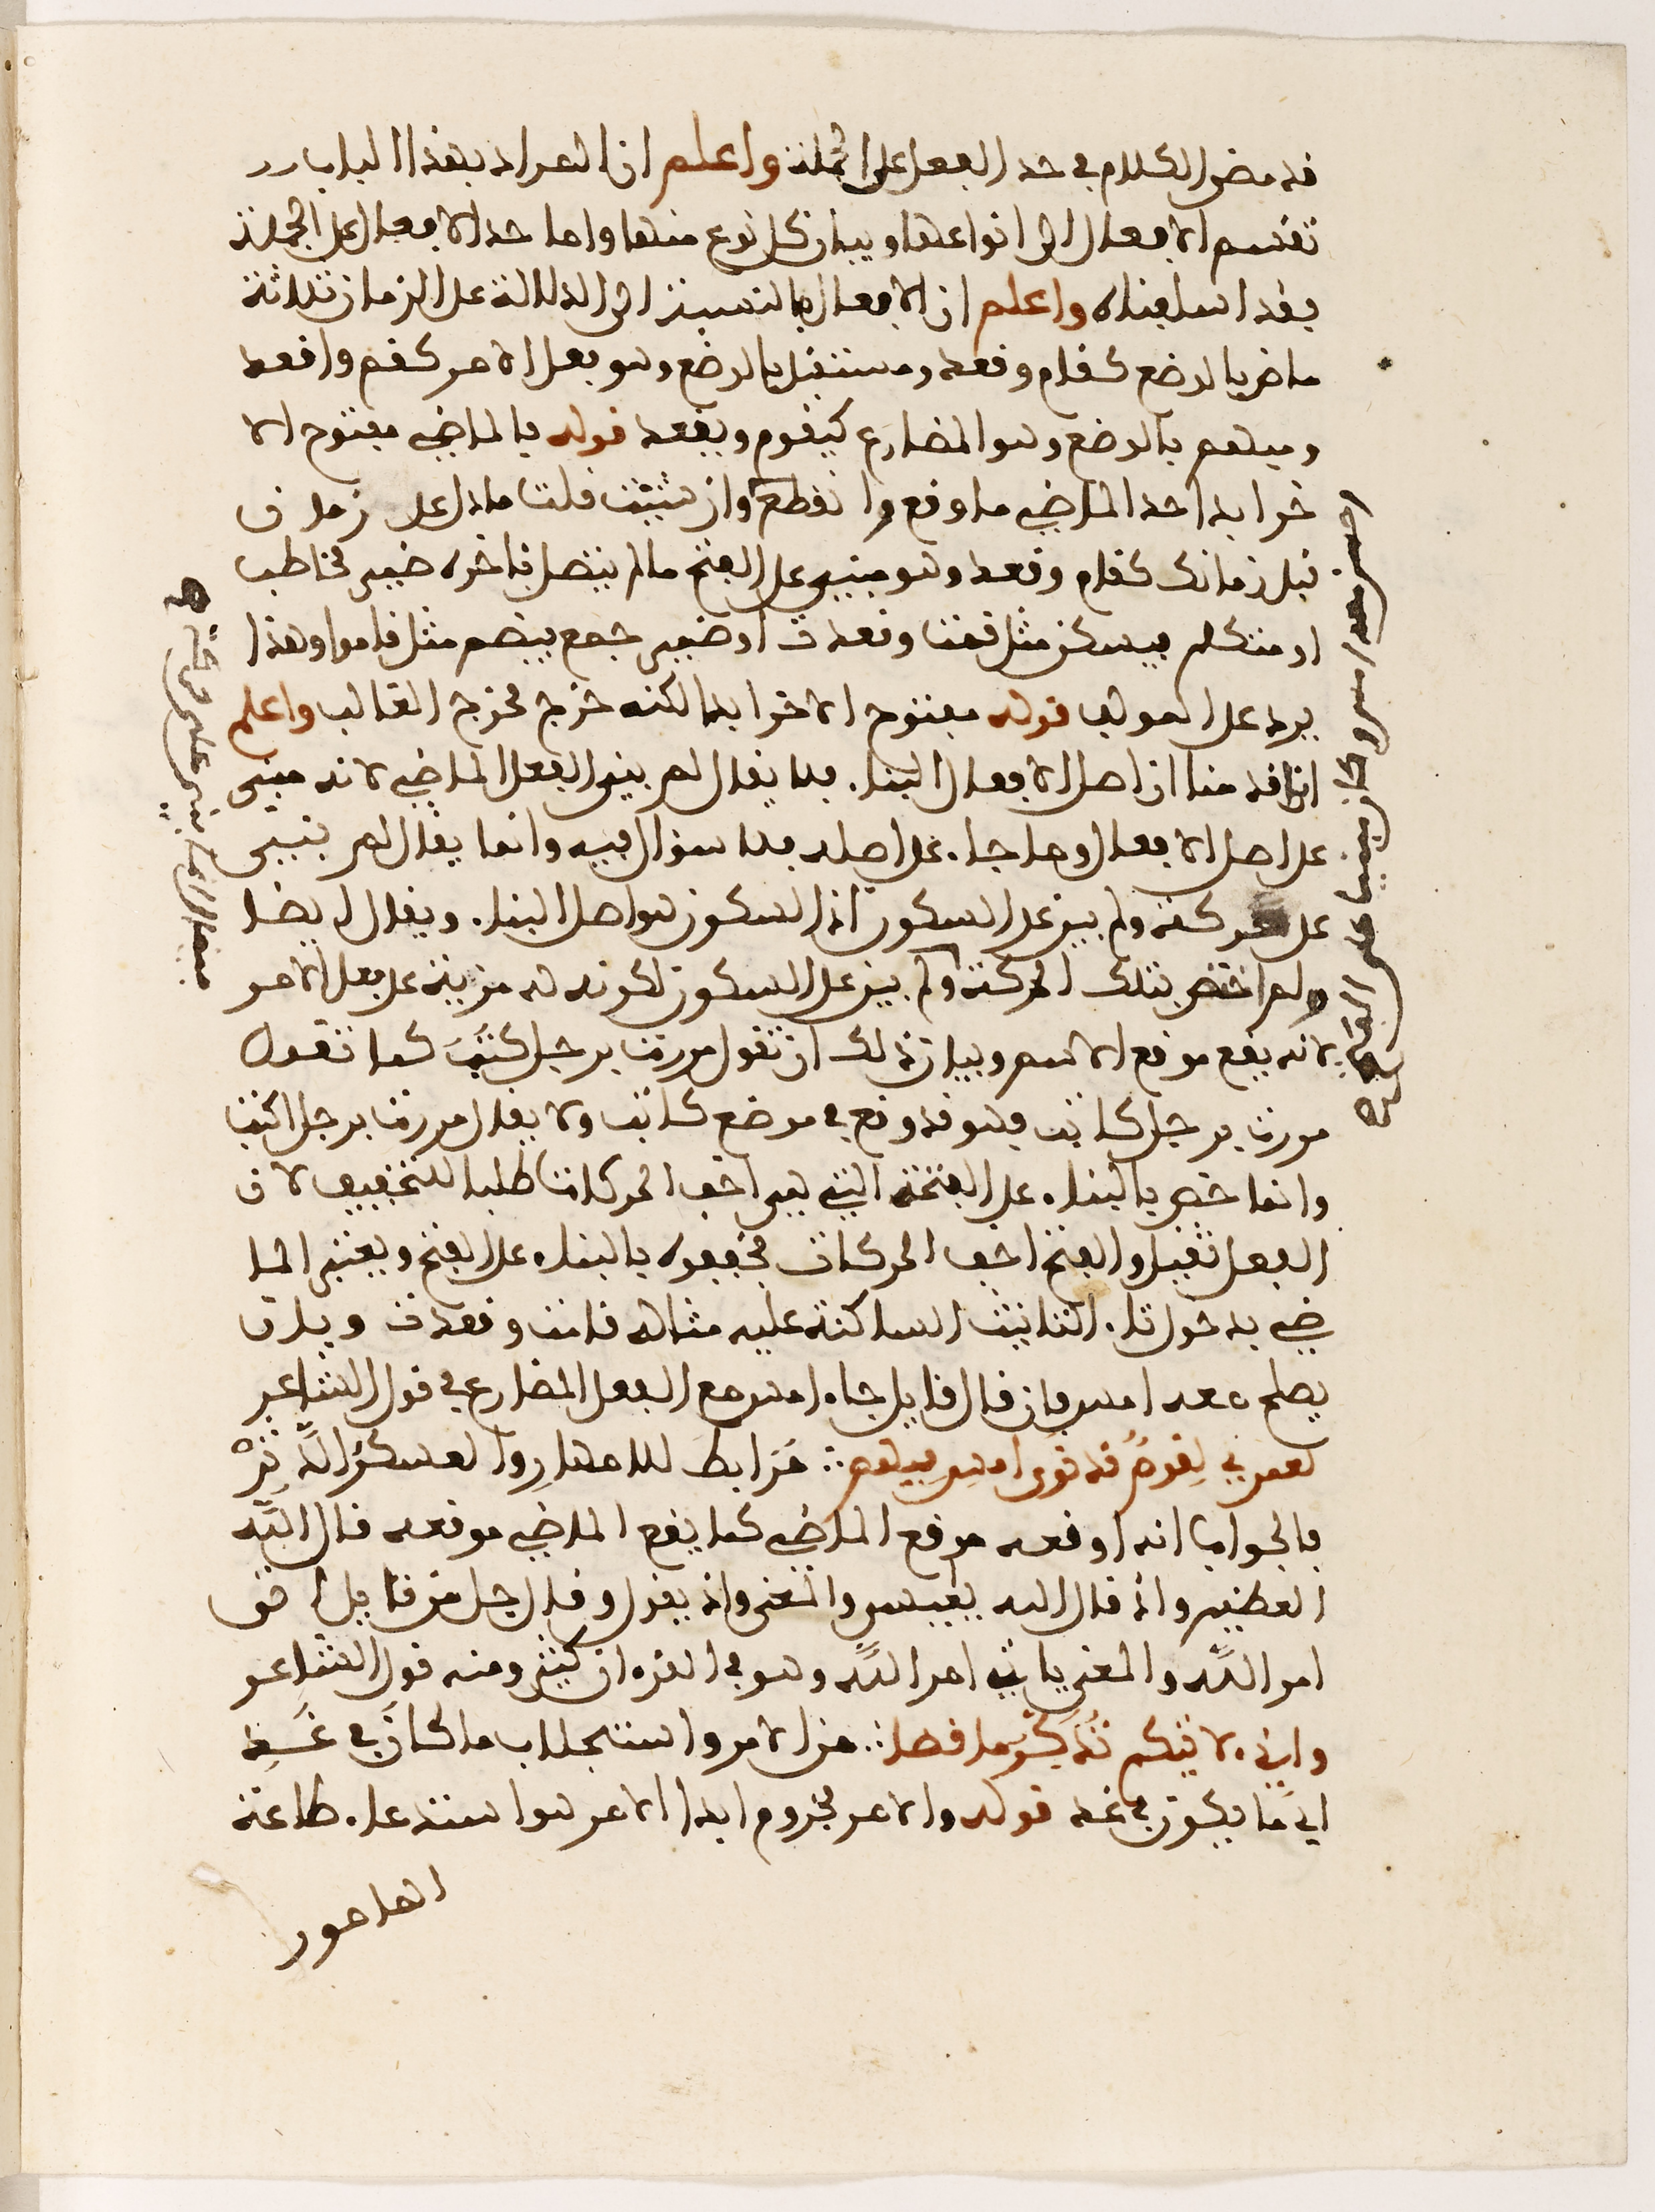 قد مضى الكلام في حد الفعل على الجملة واعلم ان المراد بهذا الباب
تقسيم الافعال الى انواعها وبيان كل نوع منها واما حد الافعال على الجملة
فقد اسلفناه واعلم ان الافعال بالنسبة الى الدلالة على الزمان ثلاثة
ماض بالوضع كقام وقعد ومستقبل بالوضع وهو فعل الامر كقم واقعد
ومبهم بالوضع وهو المضارع كيقوم ويقعد قوله فالماضي مفتوح الا
خر ابدا حد الماضي ما وقع وانقطع وان شئت قلت ما دل على زمان
قبل زمانك كقام وقعد وهو مبني على الفتح ما لم يتصل بآخره ضمير مخاطب
او متكلم فيسكن مثل قمت وقعدت او ضمير جمع فيضم مثل قاموا وهذا
يرد على المولف قوله مفتوح الاخر ابدا لكنه خرج مخرج الغالب واعلم
انا قدمنا ان اصل الافعال البناء فلا يقال لم بني الفعل الماضي لانه مبني
على اصل الافعال وما جاء على اصله فلا سؤال فيه وانما يقال لم بني
على حركة ولم يبن على السكون اذ السكون هو اصل البناء ويقال ايضا
ولم اختص بتلك الحركة ولم يبن على السكون لكونه له مزية على فعل الامر
لانه يقع موقع الاسم وبيان ذلك ان تقول مررت برجل كتب كما تقول
مررت برجل كاتب فهو قد وقع في موضع كاتب ولا يقال مررت برجل اكتب
وانما خص بالبناء على الفتحة التي هي اخف الحركات طلبا للتخفيف لان
الفعل ثقيل والفتح اخف الحركات فخففوه بالبناء على الفتح ويعتبر الما
ضي بدخول تاء التانيث الساكنة عليه مثاله قامت وقعدت وبان
يصلح معه امس فان قال قايل جاء امس مع الفعل المضارع في قول الشاعر
لعمري لقوم قد نرى امس فيهم ∴ مرابط للامهار والعسكر الدثر
فالجواب انه اوقعه موقع الماضي كما يقع الماضي موقعه قال الله
العظيم واذ قال الله يعيسى والمعنى واذ يقول وقال جل من قايل اتى
امر الله والمعنى ياتي امر الله وهو في القرءان كثير ومنه قول الشاعر
واني لاتيكم تذكر ما مضى ∴ من الامر واستجلاب ما كان في غد
اي ما يكون في غد قوله والامر مجزوم ابدا الامر هو استدعاء طاعة
المامور